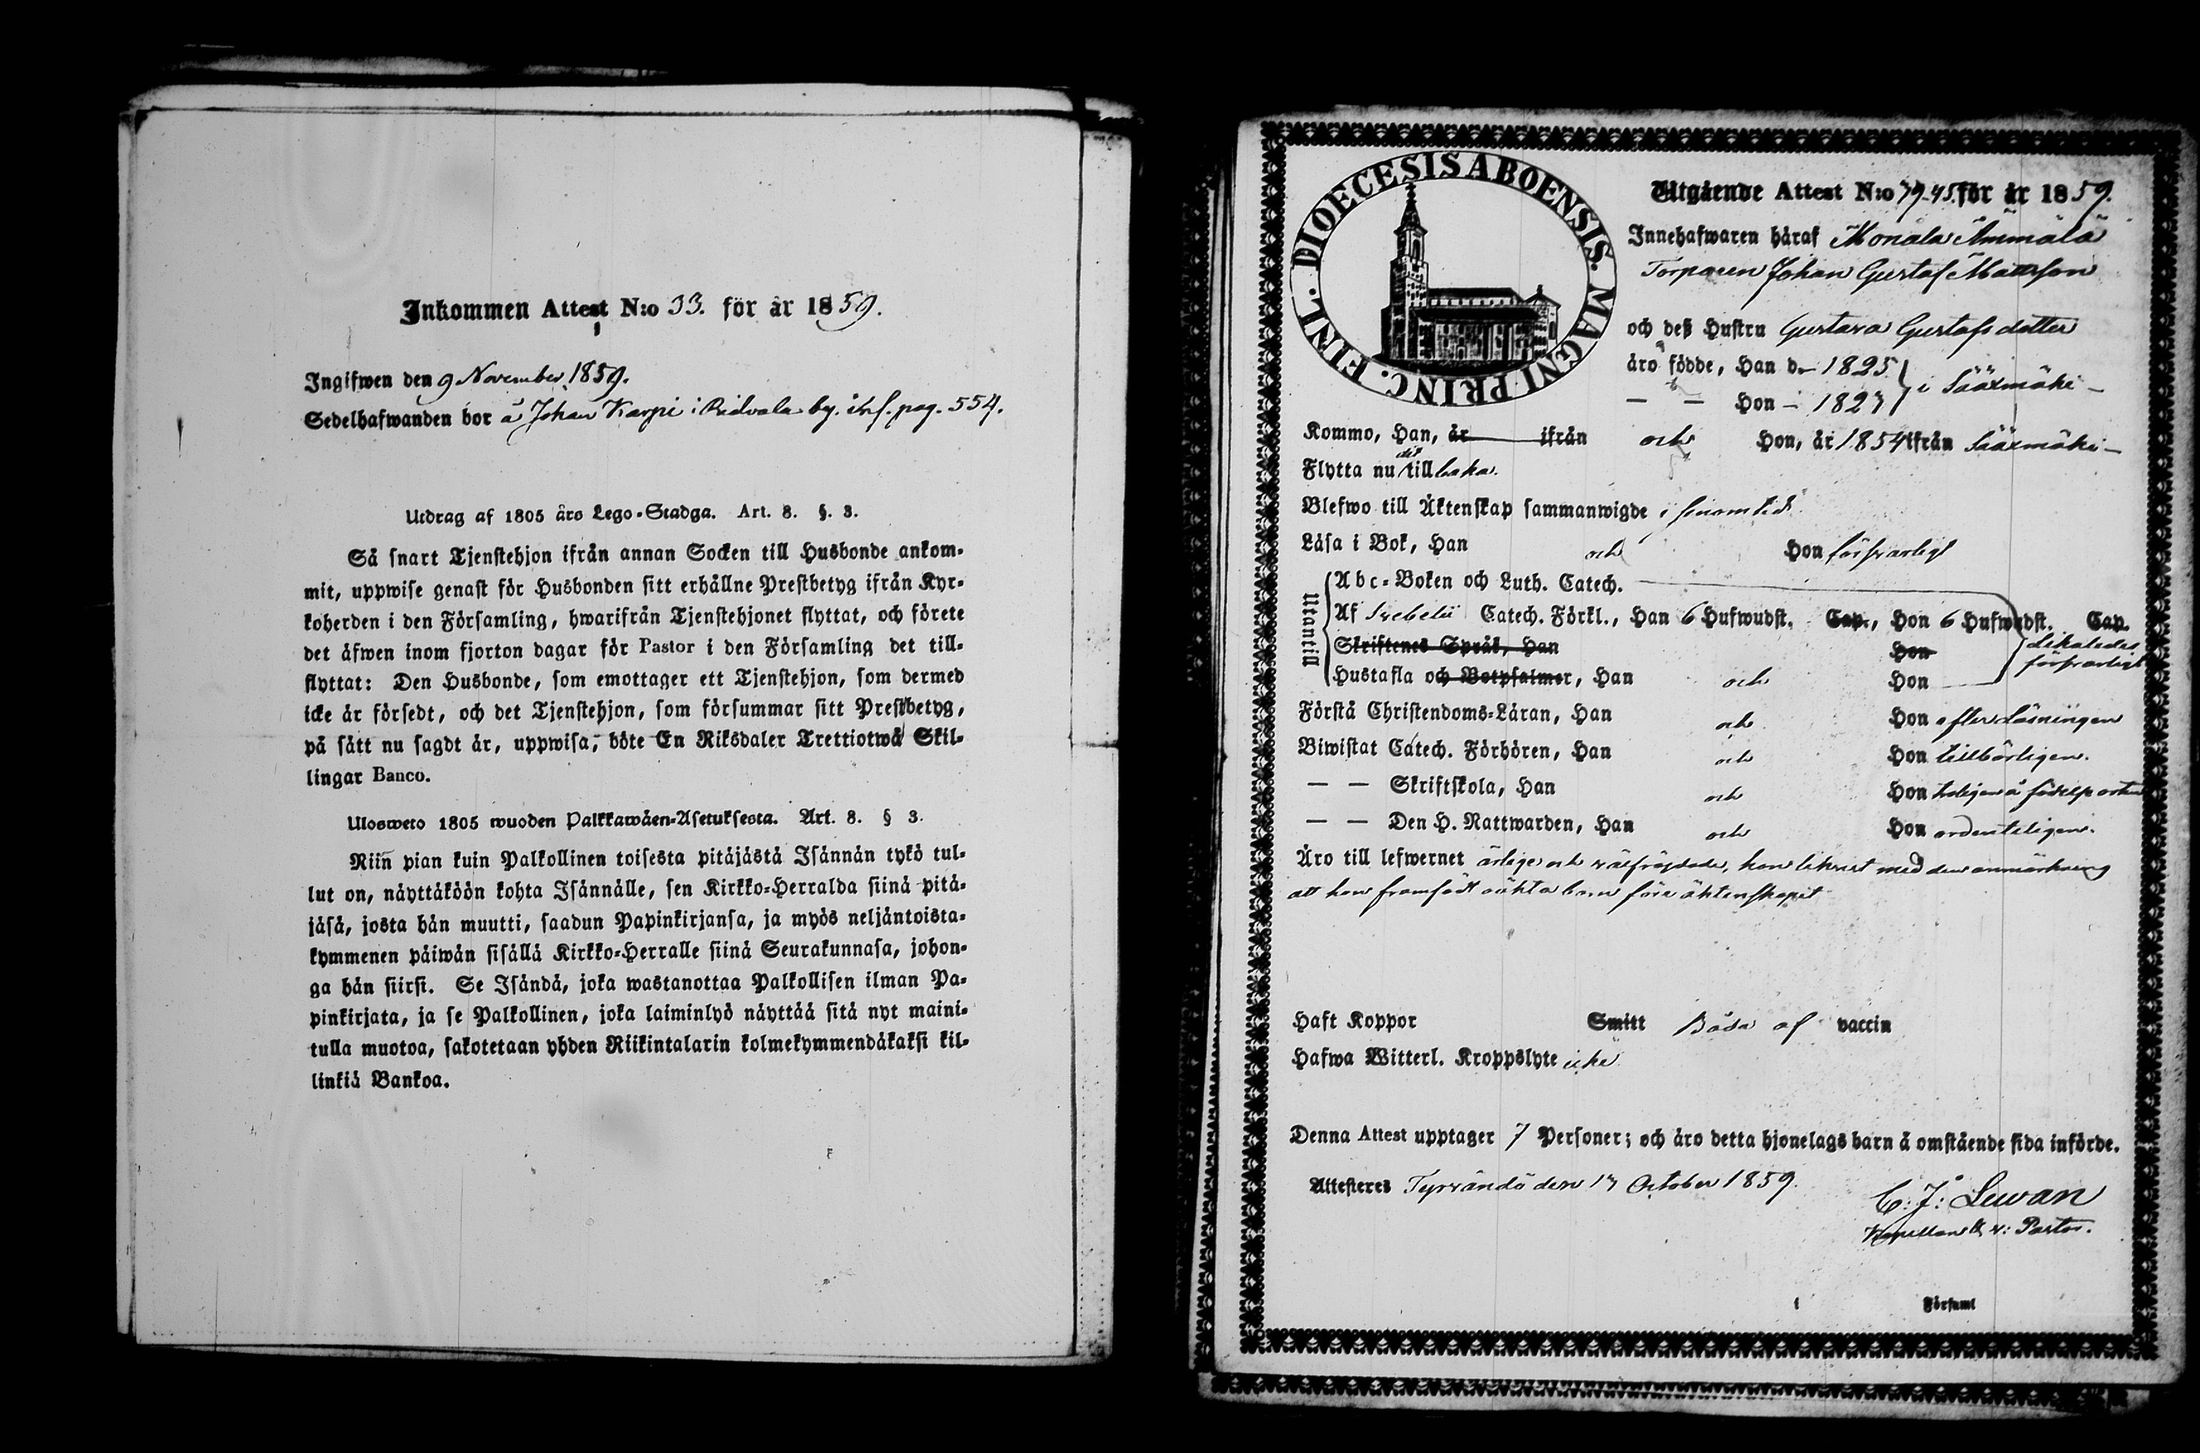 Inkommen Attest N:o 33. för år 1859.
Ingifwen den 9 November 1859.
Sedelhafwanden bor å Johan Karpi i Ridvala by. Inf. pag. 554.
Utdrag af 1805 års Lego-Stadga. Art. 8. §. 3.
Så snart Tjenstehjon ifrån annan Socken till Husbonde ankom-
mit, uppwise genast för Husbonden sitt erhållne Prestbetyg ifrån Kyr-
koherden i den Församling, hwarifrån Tjenstehjonet flyttat, och förete
det äfwen inom fjorton dagar för Pastor i den Församling det till-
flyttat: Den Husbonde, som emottager ett Tjenstehjon, som dermed
icke är försedt, och det Tjenstehjon, som försummar sitt Prestbetyg,
på sätt nu sagdt är, uppwisa, böte En Riksdaler Trettiotwå Skil-
lingar Banco.
Ulosweto 1805 wuoden Palkkawäen-Asetuksesta. Art. 8. § 3.
Niin pian kuin Palkollinen toisesta pitäjästä Isännän tykö tul-
lut on, näyttäköön kohta Isännälle, sen Kirkko-Herralda siinä pitä-
jäsä, josta hän muutti, saadun Papinkirjansa, ja myös neljäntoista-
kymmenen päiwän sisällä Kirkko-Herralle siinä Seurakunnasa, johon-
ga hän siirsi. Se Isändä, joka wastanottaa Palkollisen ilman Pa-
pinkirjata, ja se Palkollinen, joka laiminlyö näyttää sitä nyt maini-
tulla muotoa, sakotetaan yhden Riikintalarin kolmekymmendäkaksi kil-
linkiä Bankoa.
DIOECESIS ABOENSIS. MAGNI PRINC. FINL.
Utgående Attest N:o 79-45. för år 1859.
Innehafwaren häraf Monala Ämmälä
Torparen Johan Gustaf Mattsson
och deß Hustru Gustava Gustafsdotter
äro födde, Han d– 1825
— — Hon – 1827 i Sääxmäki –
Kommo, Han, år ifrån och Hon, år 1854 ifrån Sääxmäki –
Flytta nu dit tillbaka.
Blefwo till Äktenskap sammanwigde i sinom tid
Läsa i Bok, Han och Hon försvarligt
Utantill
Abc-Boken och Luth. Catech.
Af Svebelii Catech. Förkl., Han 6 Hufwudst. Cap., Hon 6 Hufwudst. Cap.
Skriftenes Språk, Han Hon
likaledes försvarligt
Hustafla och Botpsalmer, Han och Hon
Förstå Christendoms-Läran, Han och Hon efter läsningen
Biwistat Catech. Förhören, Han och Hon tillbörligen.
— — Skriftskola, Han och Hon troligen å födelseorten
— — Den H. Nattwarden, Han och Hon ordenteligen.
Äro till lefwernet ärlige och välfrejdade, hon likväl med den anmärkning
att hon framfödt oäkta barn före äktenskapet
Haft Koppor Smitt Båda af vaccin
Hafwa Witterl. Kroppslyte icke
Denna Attest upptager 7 Personer; och äro detta hjonelags barn å omstående sida införde.
Attesteres Tyrvändö den 17 October 1859.
C: J: Lewan
Kapellan & v: Pastor.
Församl